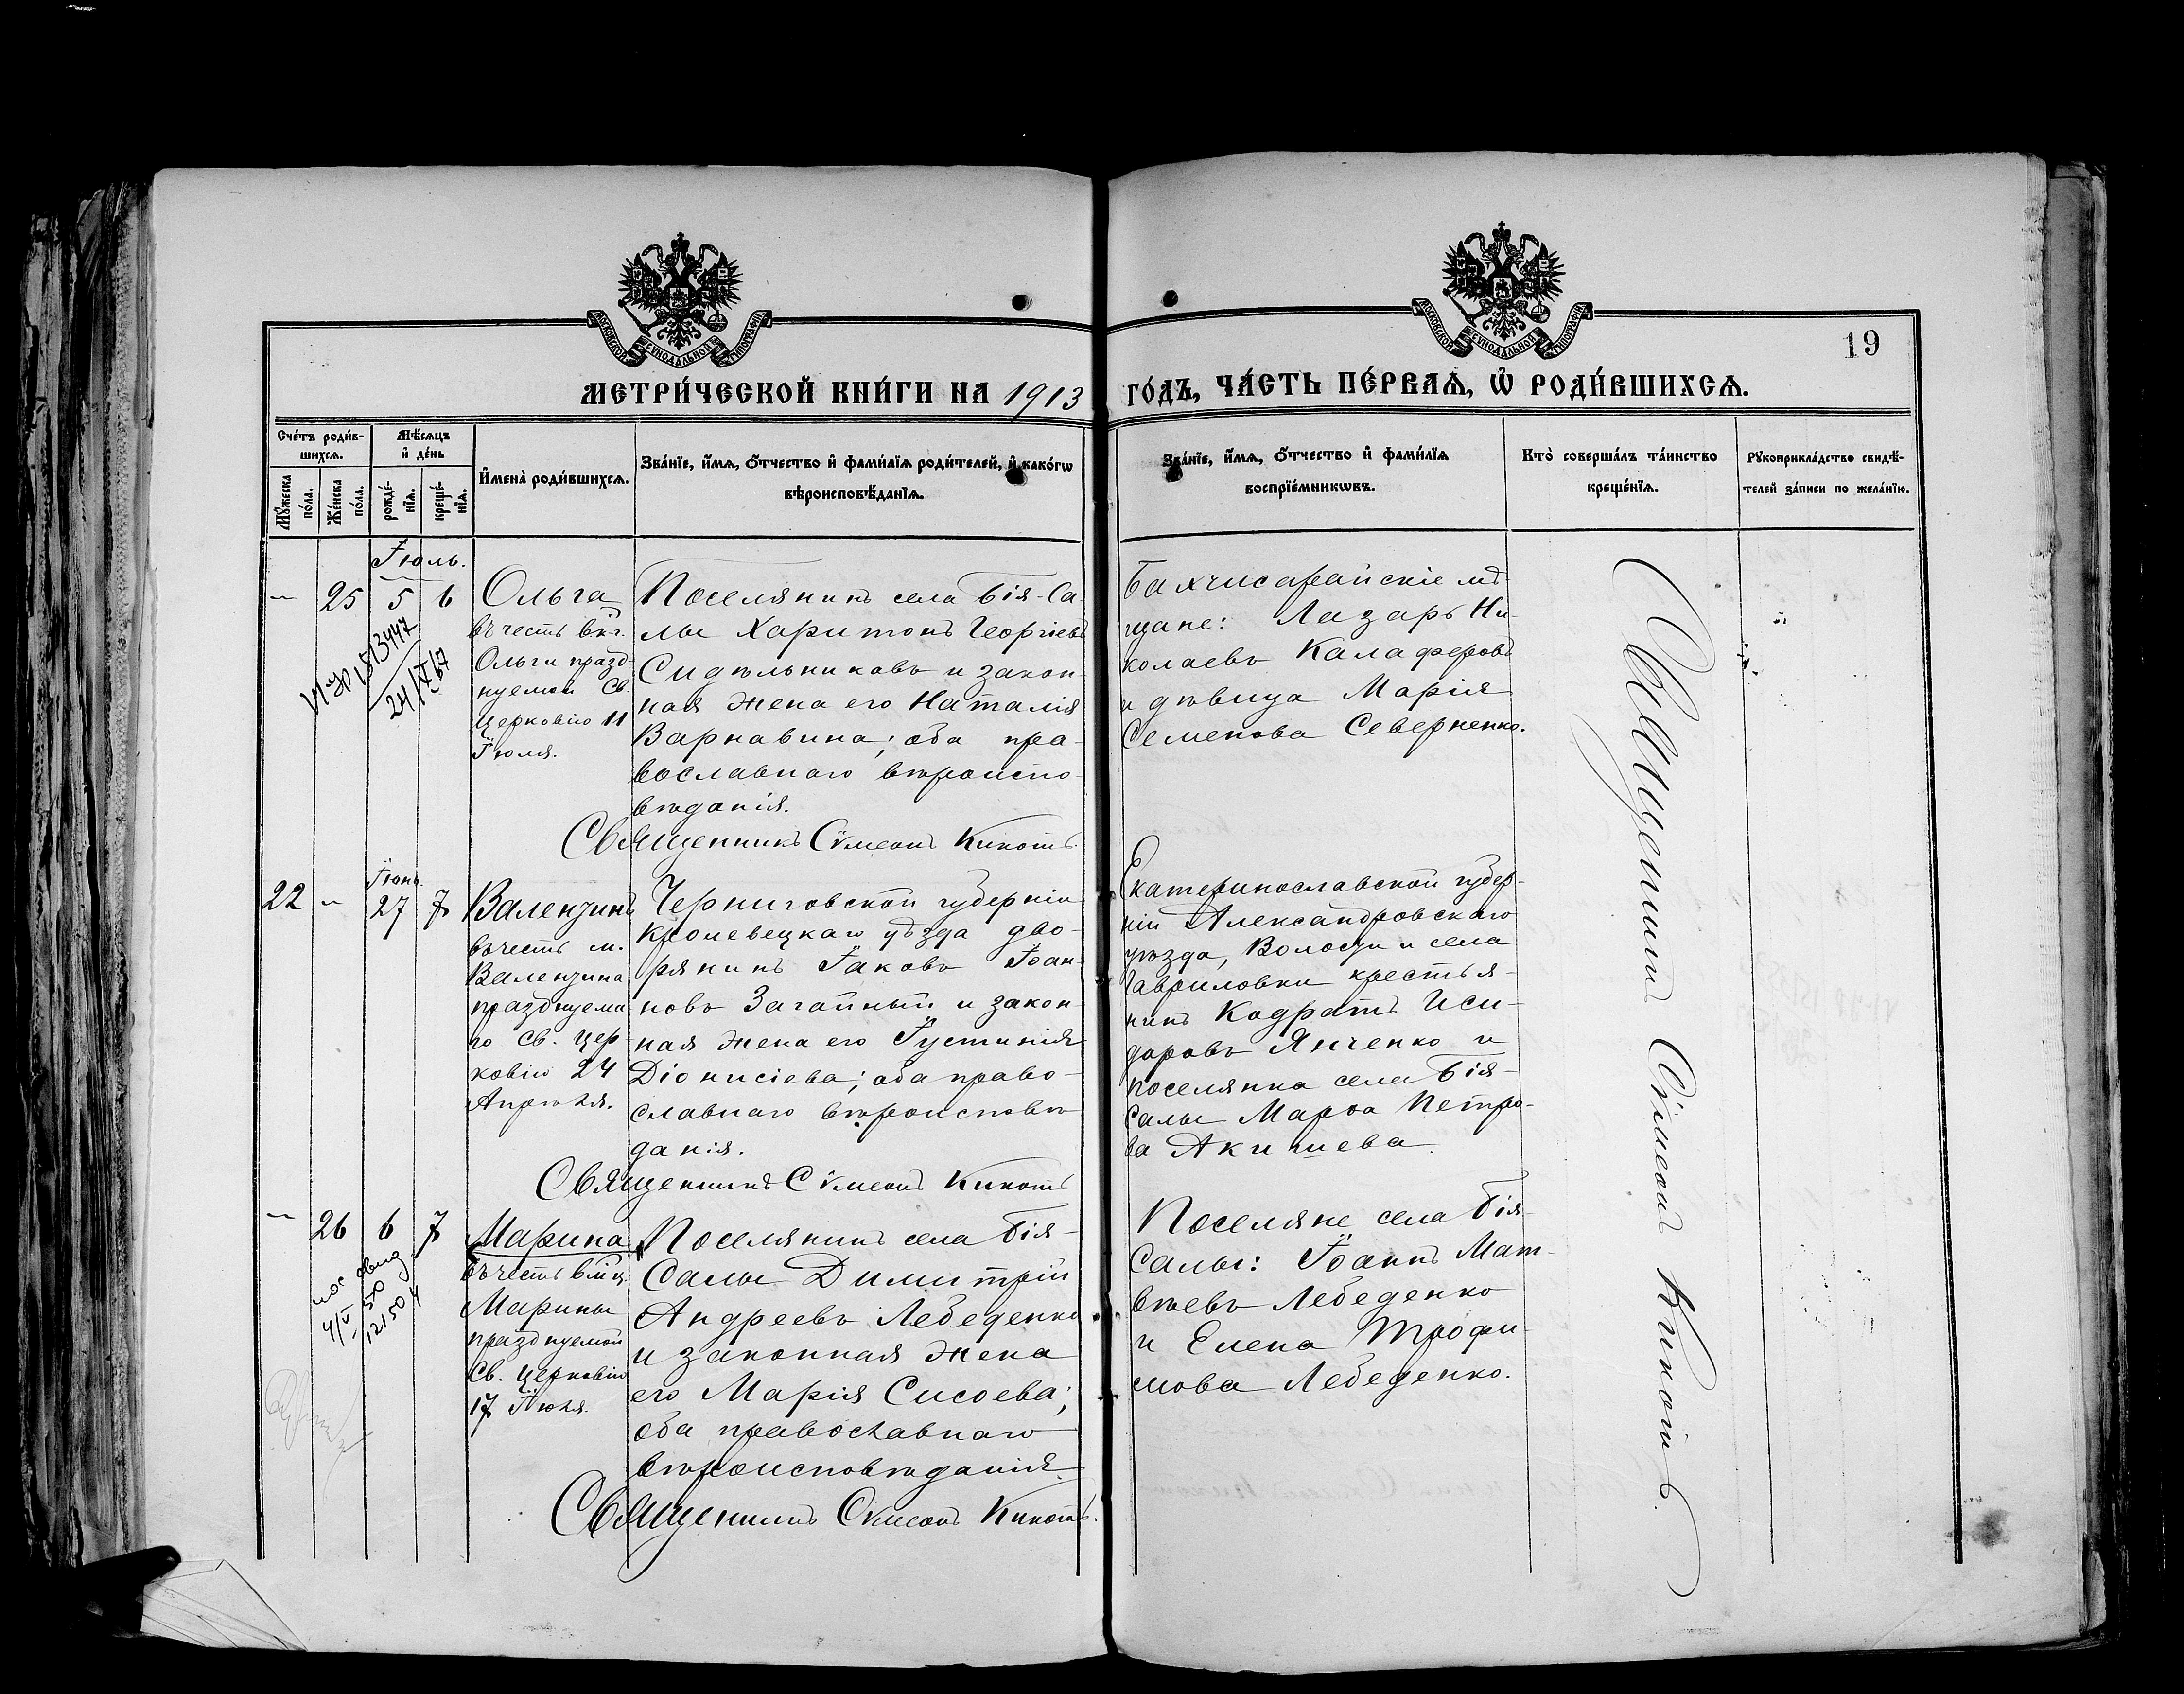 19
МЕТРИ́ЧЕСКОЙ КНИ́ГИ НА 1913 ГО́ДЪ, ЧА́СТЬ ПЕ́РВАѦ, Ѡ҆ РОДИ́ВШИХСѦ.
Сче́тъ роди́в-
шихсѧ.
Мѣ́сѧцъ
и҆ де́нь
Мꙋ́жеска
по́ла.
Же́нска
по́ла.
рожде́-
нїѧ.
креще́-
нїѧ.
И҆мена̀ роди́вшихсѧ.
Зва́нїе, и҆́мѧ, ѻ҆́тчество и҆ фами́лїѧ роди́телей, и҆ како́гѡ
вѣроисповѣ́данїѧ.
Зва́нїе, и҆́мѧ, ѻ҆́тчество и҆ фами́лїѧ
воспрїе́мникѡвъ.
Кто̀ соверша́лъ та́инство
креще́нїѧ.
Рꙋкоприкла́дство свидѣ́-
телей за́писи по жела́нїю.
Іюль.
— 25 5 6
Ольга
въ честь вкг.
Ольги празд-
нуемой Св.
Церковію 11
Іюля.
Поселянинъ села Бія-Са-
лы Харитонъ Георгіевъ
Сидѣльниковъ и закон-
ная жена его Наталія
Варнавина; оба пра-
вославнаго вѣроиспо-
вѣданія.
Священникъ Сѵмеонъ Кикотъ.
Бахчисарайскіе мѣ-
щане: Лазарь Ни-
колаевъ Калаферовъ
и дѣвица Марія
Семенова Северненко.
1513447
24/X 67
Іюнь.
22 — 27 7
Валентинъ
въ честь м.
Валентина
празднуема
го Св. Цер
ковію 24
Апрѣля.
Черниговской губерніи
Кролевецкаго уѣзда дво-
рянинъ Іаковъ Іоан-
новъ Загайный и закон-
ная жена его Іустинія
Діонисіева; оба право-
славнаго вѣроисповѣ
данія.
Священникъ Сѵмеонъ Кикотъ
Екатеринославской губер-
ніи Александровскаго
уѣзда, Волости и села
Гавриловки крестья-
нинъ Кодратъ Иси-
доровъ Янченко и
поселянка села Бія-
Салы Марѳа Петро-
ва Акишева.
— 26 6 7
Марина
въ честь вмц.
Марины
празднуемой
Св. Церковію
17 Іюля.
Поселянинъ села Бія-
Салы Димитрій
Андреевъ Лебеденко
и законная жена
его Марія Сисоева;
оба православнаго
вѣроисповѣданія.
Священникъ Сѵмеонъ Кикотъ.
Поселяне села Бія-
Салы: Іоаннъ Мат-
вѣевъ Лебеденко
и Елена Трофи-
мова Лебеденко.
Священникъ Сѵмеонъ Кикотъ.